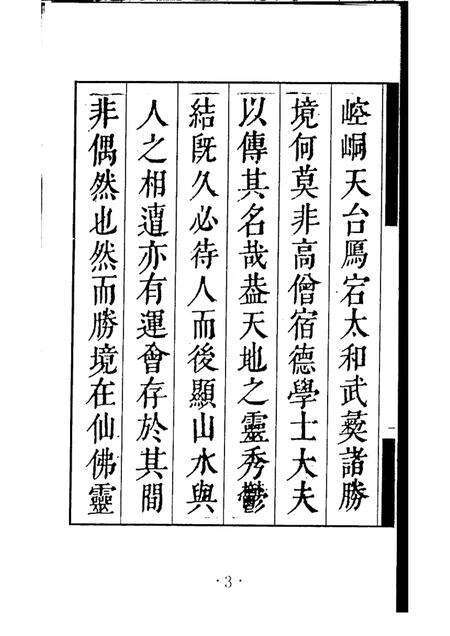 崆峒天台鴈宕太和武彛諸勝
境何莫非高僧宿德學士大夫
以傳其名哉葢天地之靈秀鬱
結既久必待人而後顯山水與
人之相遭亦有運會存於其間
非偶然也然而勝境在仙佛靈
·3·